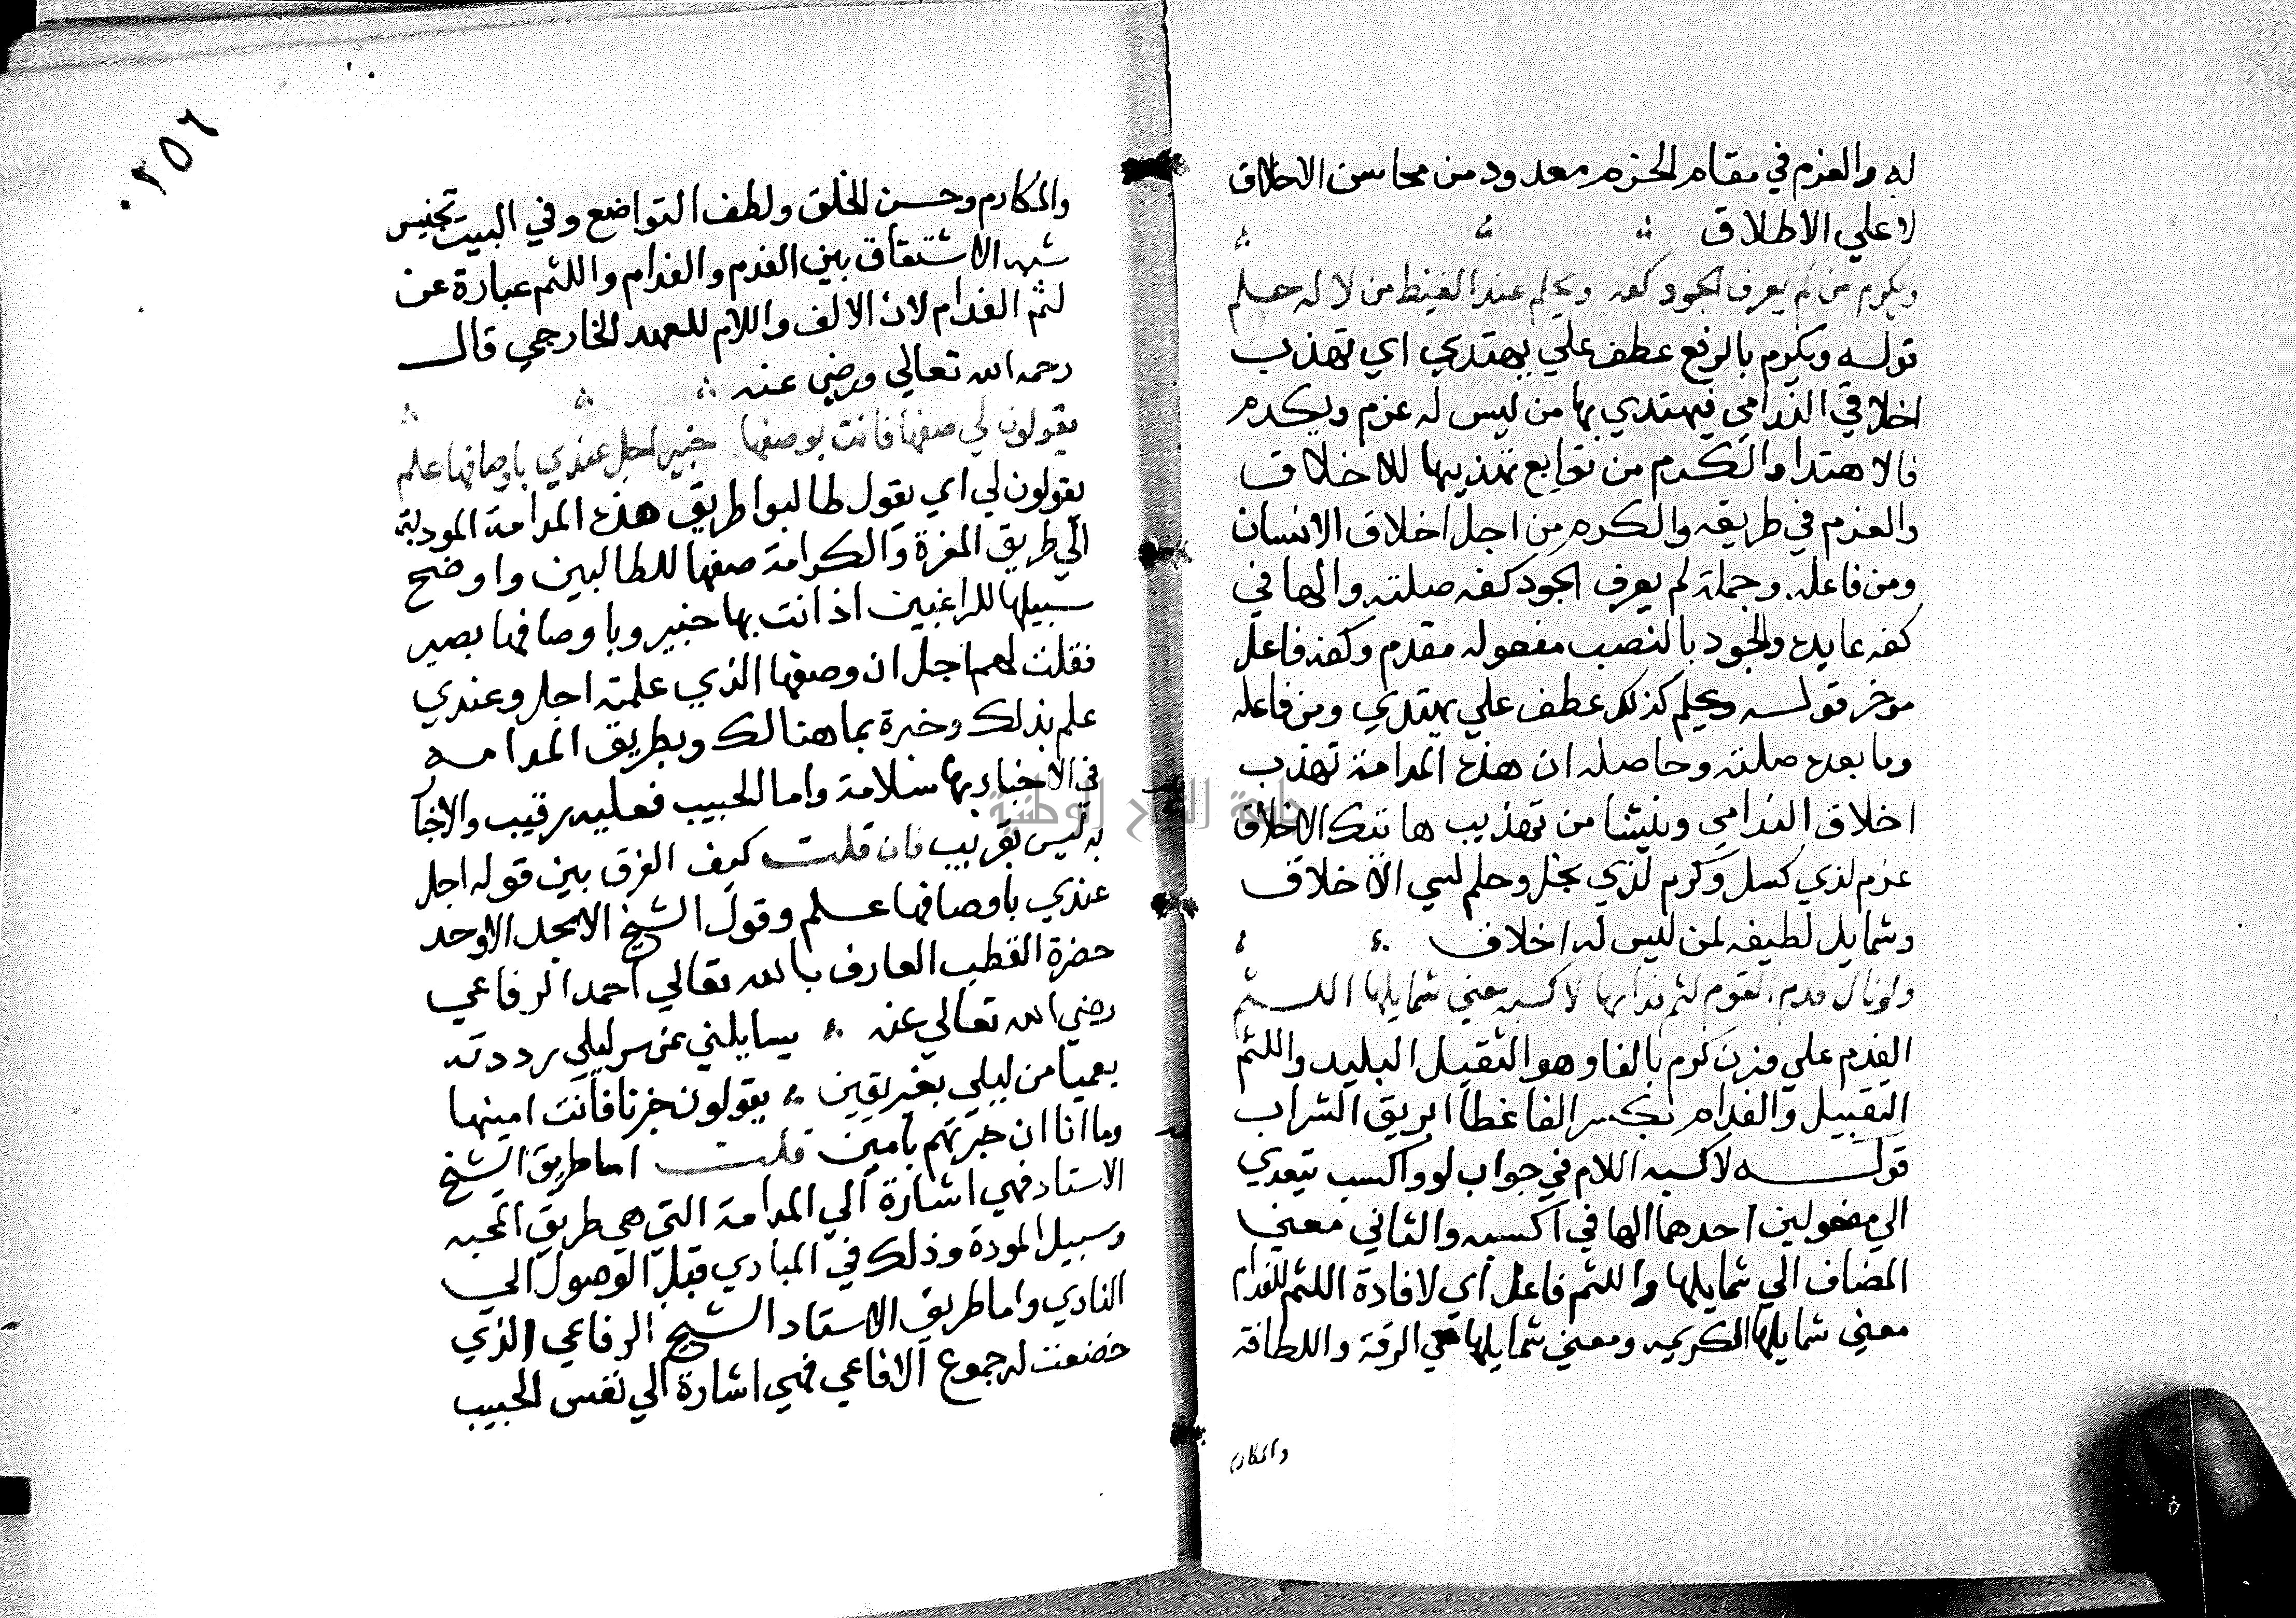 له والعزم في مقام الحزم معدود من محاسن الاخلاق
لا علي الاطلاق
ويكرم من لم يعرف الجود كفه ويحلم عند الغيظ من لا له حلم
قوله ويكرم بالرفع عطف علي يهتدي اي تهذب
اخلاق الندامي فيهتدي بها من ليس له عزم ويكرم
فالاهتدا والكرم من توابع تهذيبها للاخلاق
والعزم في طريقه والكرم من اجل اخلاق الانسان
ومن فاعله وجملة لم يعرف الجود كفه صلته والها في
كفه عايده والجود بالنصب مفعوله مقدم وكفه فاعل
موخر قوله ويحلم كذلك عطف علي يهتدي ومن فاعله
وما بعده صلته وحاصله ان هذه المدامة تهذب
اخلاق الندامي وينشا من تهذيب هاتيك الاخلاق
عزم لذي كسل وكرم لذي بخل وحلم لسي الاخلاق
وشمايل لطيفه لمن ليس له اخلاق
ولو نال فدم القوم لثم فدامها لاكسبه معني شمايلها اللثم
الفدم علي وزن كرم بالفا وهو الثقيل البليد واللثم
التقبيل والفدام بكسر الفا غطا ابريق الشراب
قوله لاكسبه اللام في جواب لو واكسب يتعدي
الي مفعولين احدهما الها في اكسبه والثاني معني
المضاف الي شمايلها واللثم فاعل اي لافادة اللثم للفدام
معني شمايلها الكريمه ومعني شمايلها هي الرقة واللطافة
والمكارم
٢٥٦
والمكارم وحسن الخلق ولطف التواضع وفي البيت تجنيس
شبه الاشتقاق بين الفدم والفدام واللثم عبارة عن
لثم الفدام لان الالف واللام للعهد الخارجي قال
رحمه الله تعالي ورضي عنه
يقولون لي صفها فانت بوصفها خبير اجل عندي باوصافها علم
يقولون لي اي يقول طالبوا طريق هذه المدامة المودية
الي طريق المعزة والكرامة صفها للطالبين واوضح
سبيلها للراغبين اذ انت بها خبير وباوصافها بصير
فقلت لهم اجل ان وصفها الذي علمته اجل وعندي
علم بذلك وخبرة بما هنالك وبطريق المدامه
في الاخبار بها سلامة واما الحبيب فعليه رقيب والاخبا
به ليس بقريب فان قلت كيف الفرق بين قوله اجل
عندي باوصافها علم وقول الشيخ الامجد الاوحد
حضرة القطب العارف بالله تعالي احمد الرفاعي
رضي الله تعالي عنه يسايلني عن سر ليلي رددته
بعميا من ليلي بغير يقين يقولون خبرنا فانت امينها
وما انا ان خبرتهم بامين قلت اما طريق الشيخ
الاستاد فهي اشارة الي المدامة التي هي طريق المحبه
وسبيل المودة وذلك في المبادي قبل الوصول الي
النادي واما طريق الاستاد الشيخ الرفاعي الذي
خضعت له جموع الافاعي فهي اشارة الي نفس الحبيب